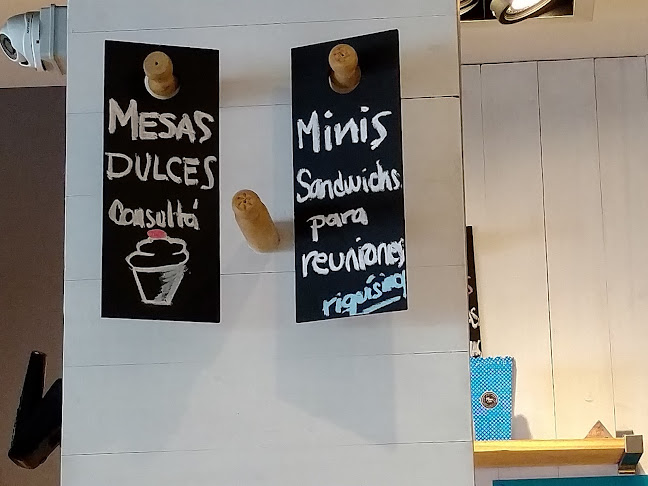 MESAS
DULCES
Consultá
Minis
Sandwichs
para
reuniones